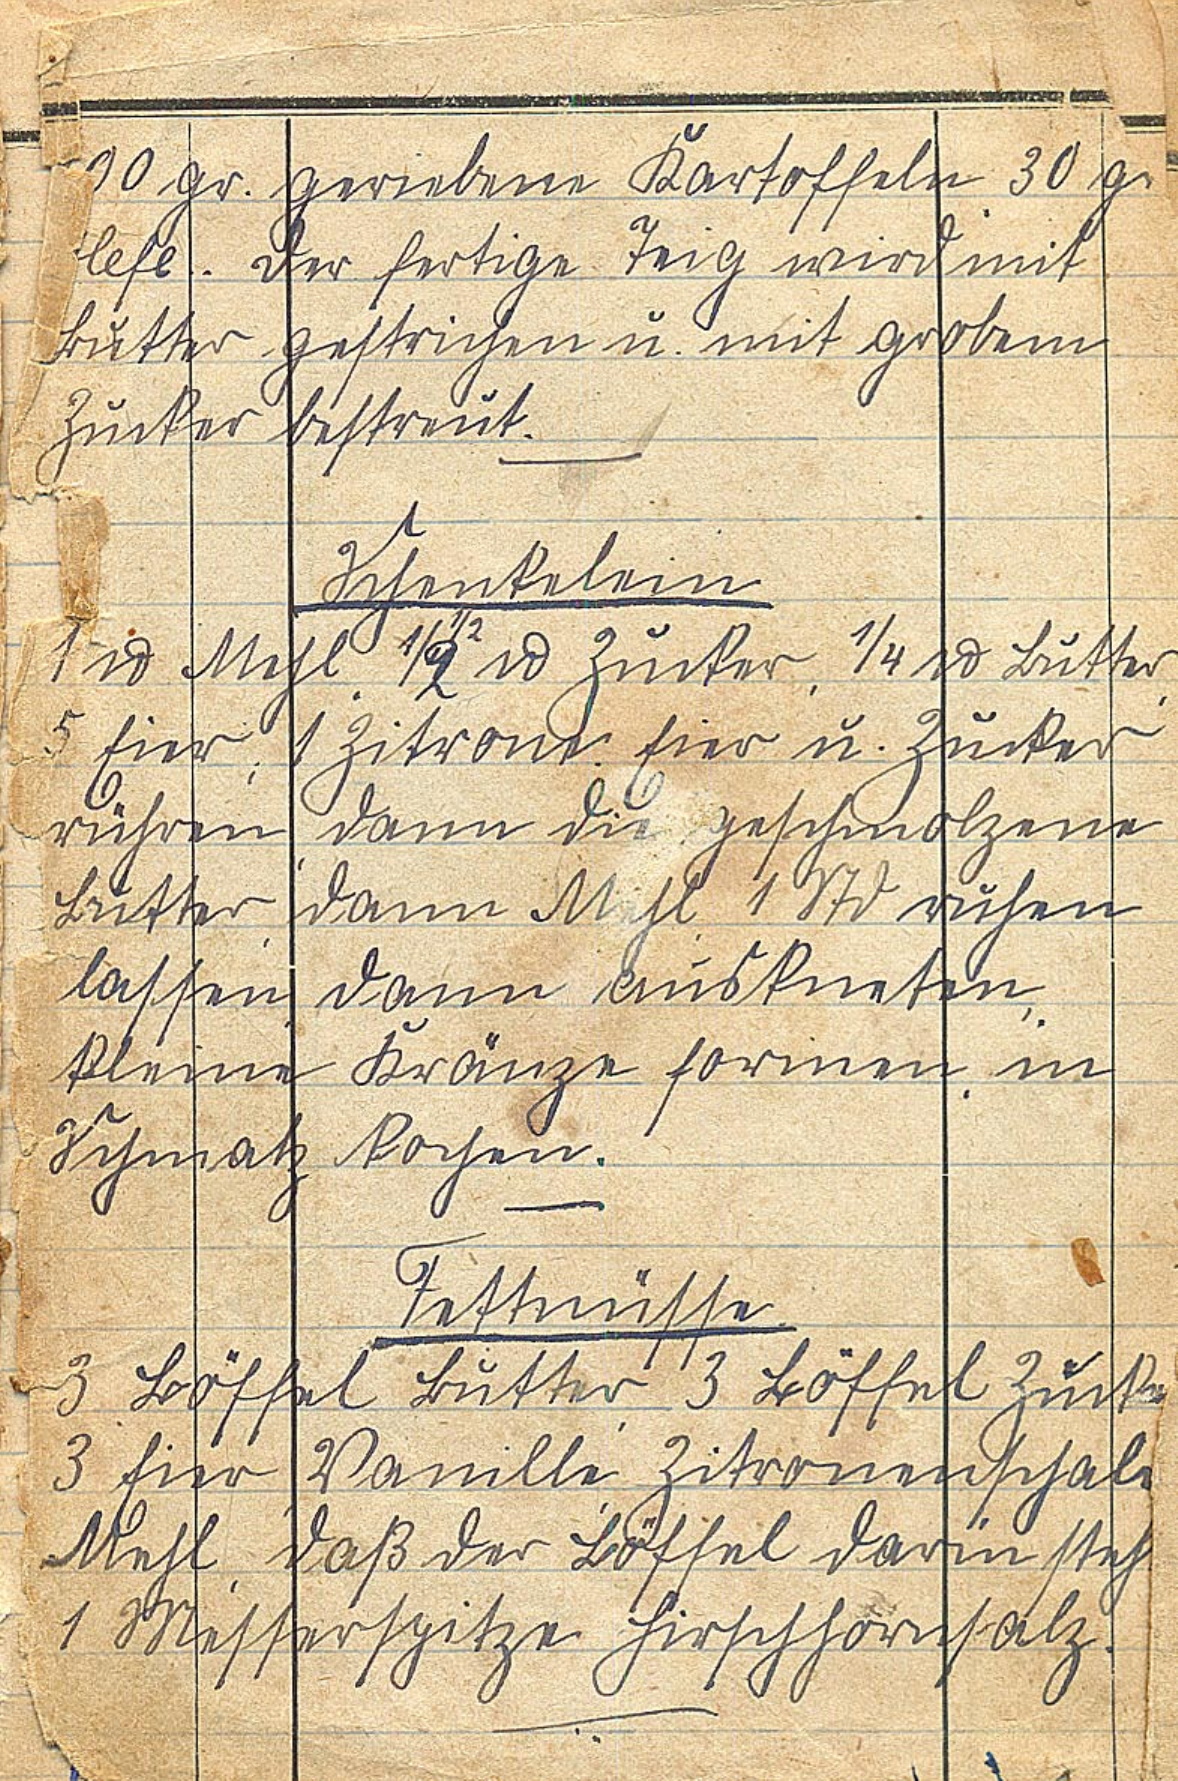 00 gr. geriebene Kartoffeln 30 gr
Hefe. Der fertige Teig wird mit
Butter gestrichen u. mit grobem
Zucker bestreut.
Schenkelein
1 ℔ Mehl, 1/2 1/2 ℔ Zucker, 1/4 ℔ Butter,
5 Eier, 1 Zitrone. Eier u. Zucker
rühren, dann die geschmolzene
Butter, dann Mehl, 1 Std ruhen
lassen, dann auskneten,
kleine Kränze formen, in
Schmalz kochen.
Fettnüsse.
3 Löffel Butter, 3 Löffel Zucke
3 Eier, Vanille, Zitronenschale
Mehl, daß der Löffel darin steh
1 Messerspitze Hirschhornsalz.